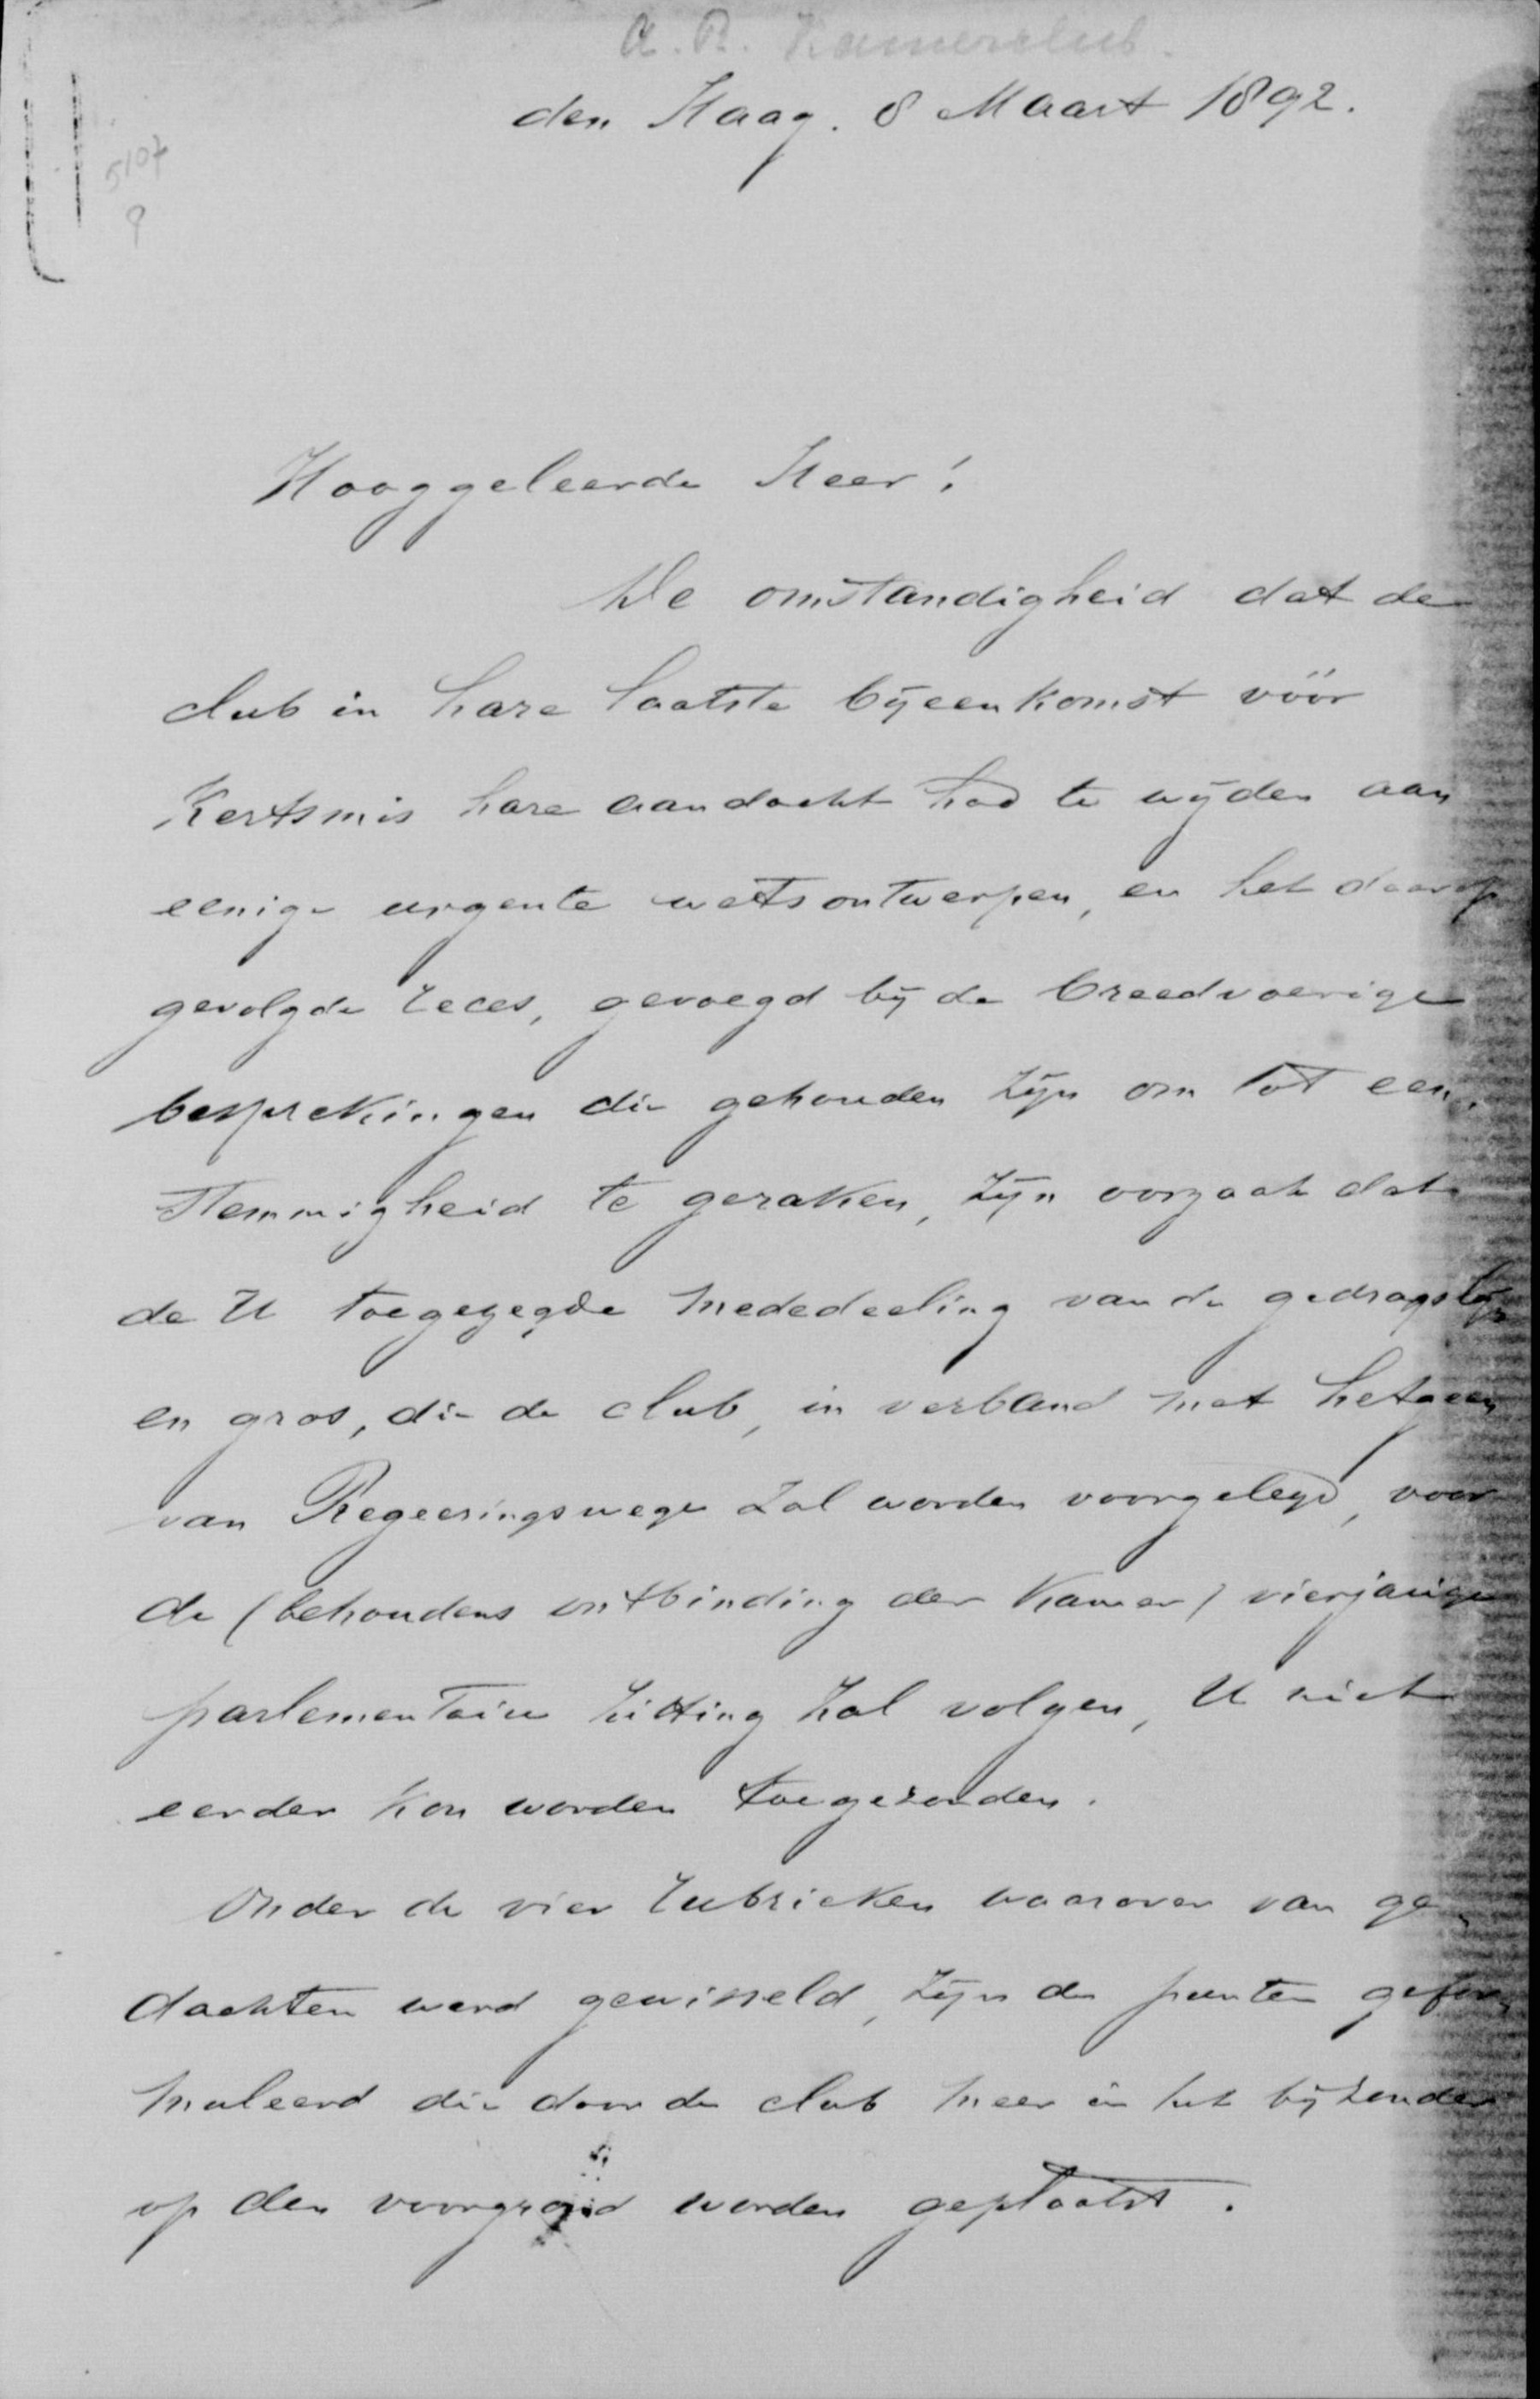 A. R. Kamerclub.
den Haag. 8 Maart 1892.
5107
9
Hooggeleerde Heer!
De omstandigheid dat de
club in hare laatste bijeenkomst vóór
Kertsmis hare aandacht had te wijden aan
eenige urgente wetsontwerpen, en het daarop
gevolgde reces, gevoegd bij de breedvoerige
besprekingen die gehouden zijn om tot een-
stemmigheid te geraken, zijn oorzaak dat
de U toegezegde mededeeling van de gedragslijn
en gros, die de club, in verband met hetgeen
van Regeeringswege zal worden voorgelegd, voor
de (behoudens ontbinding der Kamer) vierjarige
parlementaire zitting zal volgen, U niet
eerder kon worden toegezonden.
Onder de vier rubrieken waarover van ge-
dachten werd gewisseld, zijn de punten gefor-
muleerd die door de club meer in het bijzonder
op den voorgrond worden geplaatst.